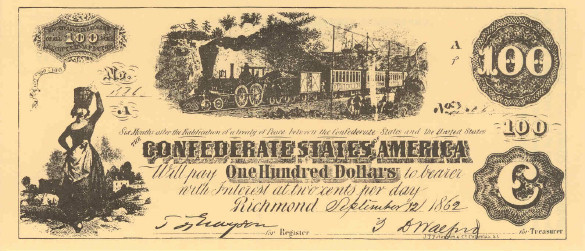 100
No.
A
A
100
No.
100
Six Months after the Ratification of a treaty of Peace between the Confederate States and the United States
THE
CONFEDERATE STATES AMERICA
Will pay One Hundred Dollars to bearer
with Interest at two cents per day
Richmond September 12 1862
C
for Register
for Treasurer